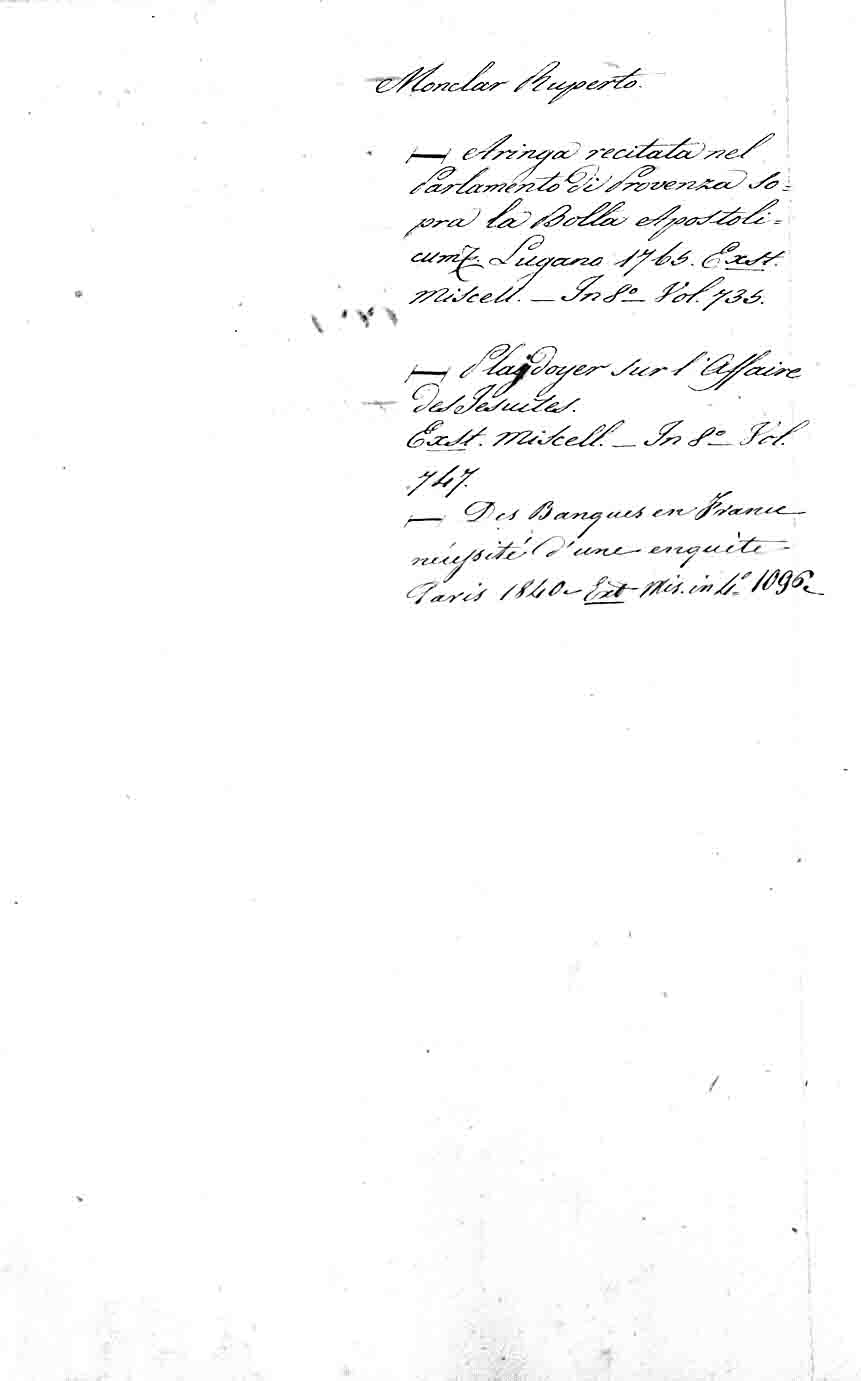 Monclar Ruperto.
— Aringa recitata nel
Parlamento di Provenza so=
pra la Bolla Apostoli=
cum &. Lugano 1765. Exst.
Miscell. — In 8º Vol. 735.
— Plaidoyer sur l'Affaire
des Jesuites.
Exst. Miscell. — In 8º Vol.
747.
— Des Banques en France
nécessité d'une enquète
Paris 1840 Ext Mis. in 4º 1096